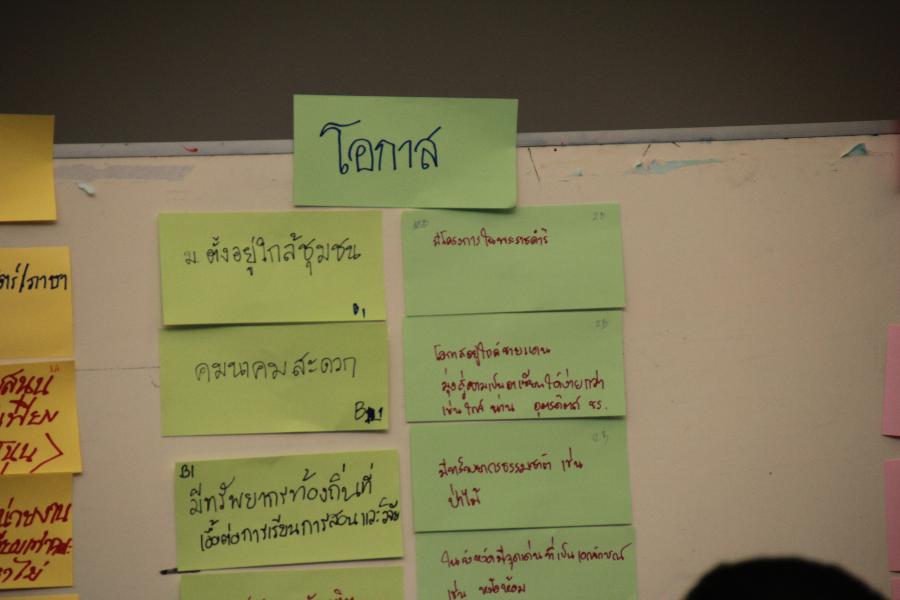 โอกาส
ม. ตั้งอยู่ใกล้ชุมชน
B1
คมนาคมสะดวก
B1
B1
มีทรัพยากรท้องถิ่นที่
เอื้อต่อการเรียนการสอนและวิจัย
2B
มีโครงการในพระราชดำริ
2B
โอกาสอยู่ใกล้ชายแดน
มุ่งสู่ความเป็นอาเซียนได้ง่ายกว่า
เช่น ใกล้ น่าน อุตรดิตถ์ ชร.
มีทรัพยากรธรรมชาติ เช่น
ป่าไม้
ในจังหวัดมีจุดเด่นที่เป็นเอกลักษณ์
เช่น หม้อห้อม
ตร์/ภาษา
สนุน
เพียง